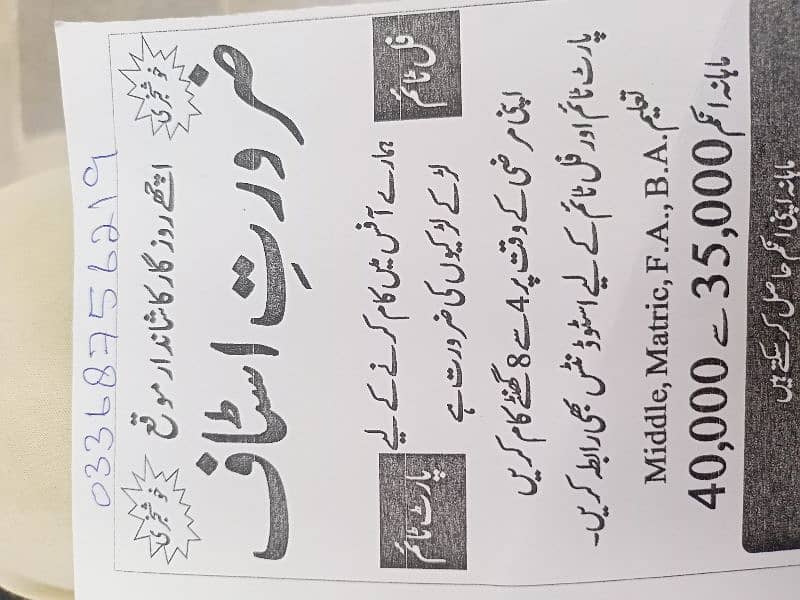 03368756219
خوشخبری
اچھے روزگار کا شاندار موقع
خوشخبری
ضرورتِ اسٹاف
فل ٹائم
ہمارے آفس میں کام کرنے کے لیے
لڑکے لڑکیوں کی ضرورت ہے
پارٹ ٹائم
اپنی مرضی کے وقت پر 4 سے 8 گھنٹے کام کریں
پارٹ ٹائم اور فل ٹائم کے لیے اسٹوڈنٹس بھی رابطہ کریں۔
تعلیم Middle, Matric, F.A., B.A.
ماہانہ انکم 35,000 سے 40,000
ماہانہ اپنی انکم حاصل کر سکتے ہیں